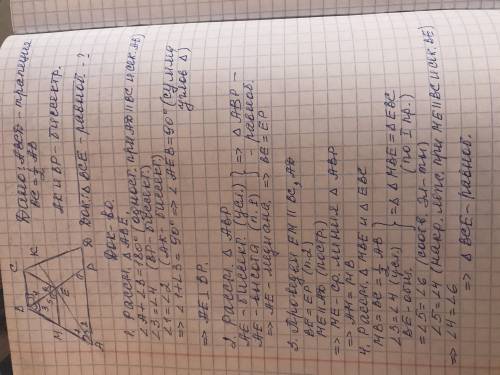 Дано: ABCD - трапеция
BC = 1/2 AB
AK и BP - биссектр.
Док: Δ BCE - равноб. - ?
Док-во.
1. Рассм. Δ ABE.
∠A+∠B=180° (одност. при AD || BC и сек. AB)
∠3=∠4 (BP - биссект.)
∠1=∠2 (AK - биссект.)
=> ∠1+∠3=90° => ∠AEB=90° (сумма углов Δ)
=> AE ⊥ BP.
2. Рассм. Δ ABP
AE - биссект. (усл)
AE - высота (п. 1) } => Δ ABP - равноб.
=> AE - медиана. => BE = EP
3. Проведем EM || BC, AD
BE = EP (п. 2)
ME || AD (постр.)
=> ME ср. линия Δ ABP
=> AM = MB
4. Рассм. Δ MBE и Δ EBC
MB = BC = 1/2 AB
∠3=∠4 (усл)
BE - общ. } => Δ MBE = Δ EBC (по I пр.)
=> ∠5=∠6 (соотв. эл-ты)
∠5=∠4 (накр. леж. при ME || BC и сек. BE)
=> ∠4=∠6 => Δ BCE - равноб.
B
C
K
M
E
A
P
D